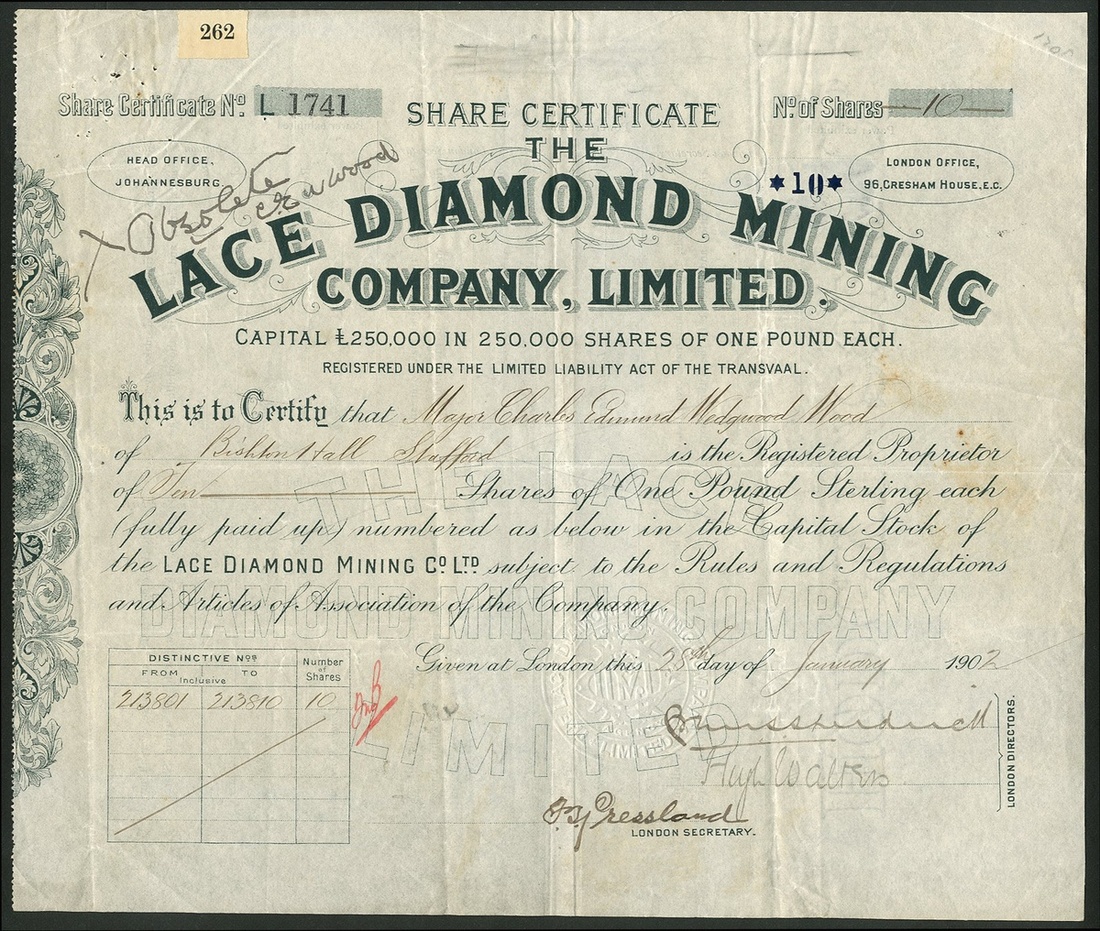 262
Share Certificate No. L 1741
SHARE CERTIFICATE
No. of Shares 10
THE
HEAD OFFICE,
JOHANNESBURG.
LONDON OFFICE,
96, CRESHAM HOUSE, E.C.
*10*
X Obsolete
LACE DIAMOND MINING
COMPANY, LIMITED.
CAPITAL £250,000 IN 250,000 SHARES OF ONE POUND EACH.
REGISTERED UNDER THE LIMITED LIABILITY ACT OF THE TRANSVAAL.
This is to Certify that Major Charles Edmund Wedgwood Wood
of Bishton Hall Stafford is the Registered Proprietor
of Ten Shares of One Pound Sterling each
(fully paid up) numbered as below in the Capital Stock of
the LACE DIAMOND MINING CO. LTD. subject to the Rules and Regulations
and Articles of Association of the Company.
THE LACE
DIAMOND MINING COMPANY
LIMITED
Given at London this 28th day of January 1902
DISTINCTIVE Nos.
FROM Inclusive TO
Number of Shares
213801 213810 10
Hugh Walters
LONDON DIRECTORS.
Cressland
LONDON SECRETARY.